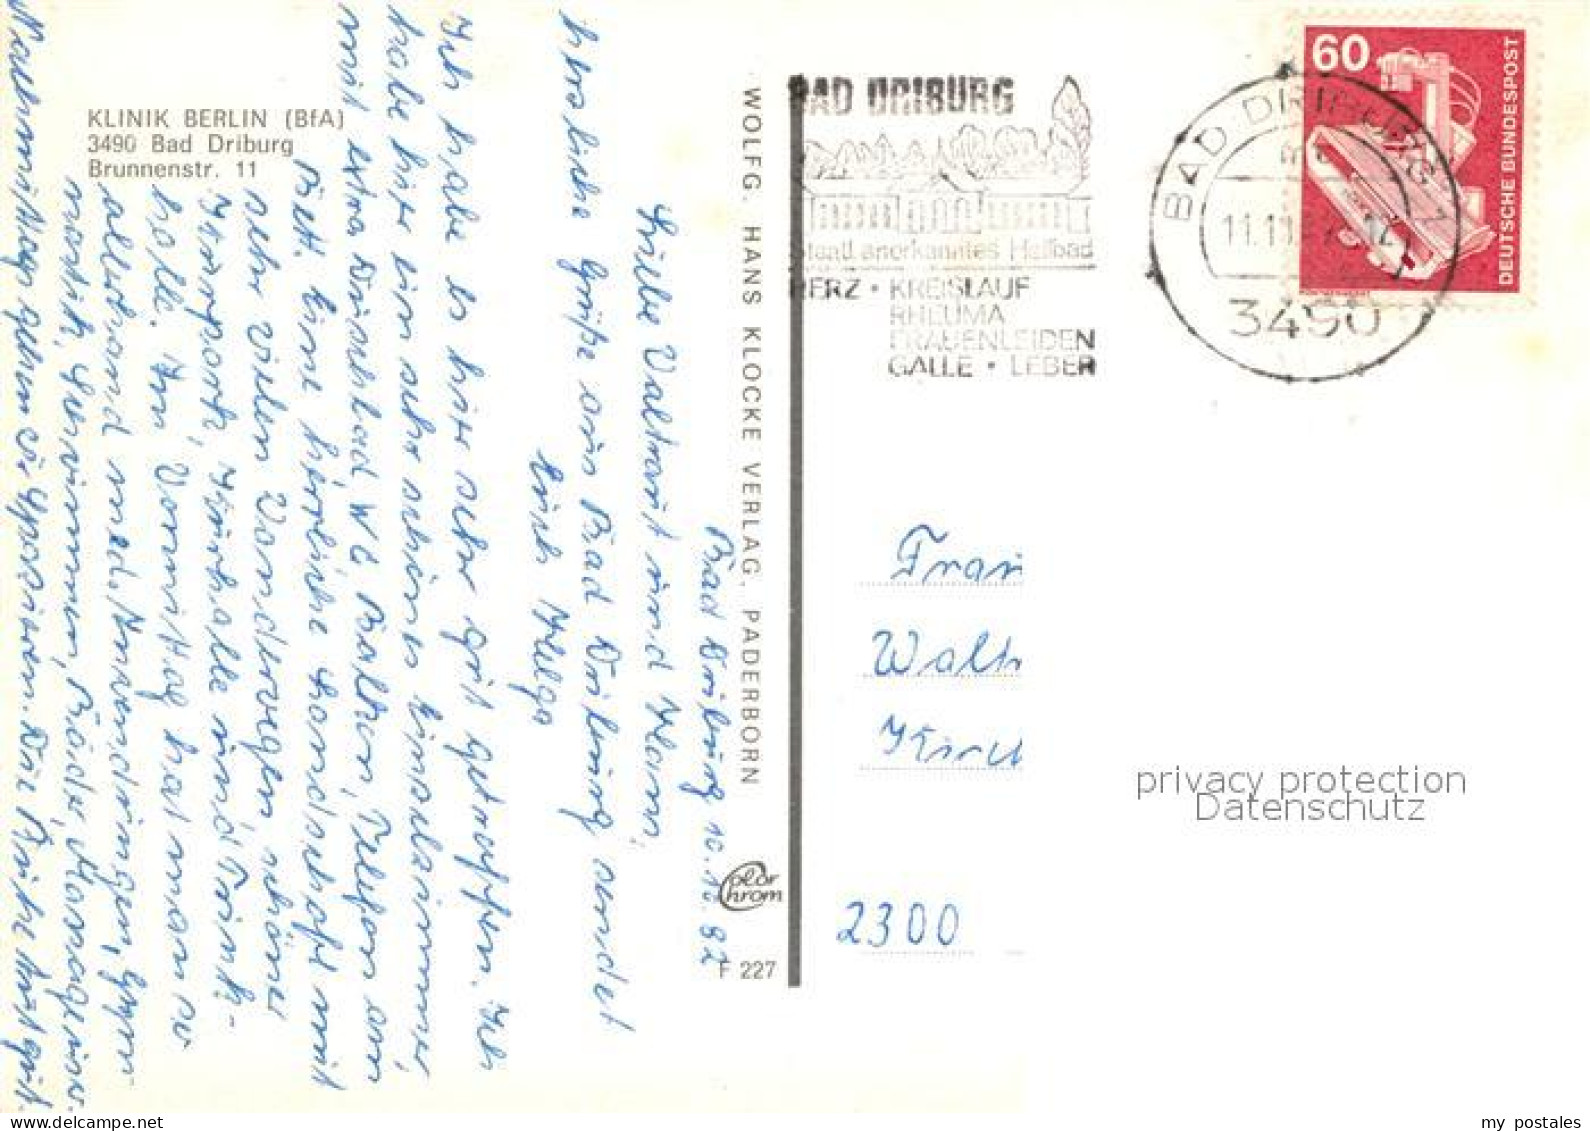 KLINIK BERLIN (BfA)
3490 Bad Driburg
Brunnenstr. 11
Bad Driburg 10.10.82
Liebe Waltraut und Hans,
herzliche Grüße aus Bad Driburg sendet
Euch Helga
Ich habe es hier sehr gut getroffen. Ich
habe hier ein sehr schönes Einzelzimmer,
mit extra Duschbad, WC Balkon, Telefon am
Bett. Eine herrliche Landschaft mit
sehr vielen Wanderwegen, schöner
Kurpark, Kurhalle und Trink-
halle. Am Vormittag hat man so
allerhand med. Anwendungen, Gym-
nastik, Schwimmen, Bäder, Massagen usw.
Nachmittags gehen wir spazieren.
WOLFG. HANS KLOCKE VERLAG, PADERBORN
Color
Chrom
F 227
BAD DRIBURG
Staatl. anerkanntes Heilbad
HERZ • KREISLAUF
RHEUMA
FRAUENLEIDEN
GALLE • LEBER
BAD DRIBURG 1
11.11.
3490
60
DEUTSCHE BUNDESPOST
Frau
Walt
Kirch
2300
privacy protection
Datenschutz
my postales